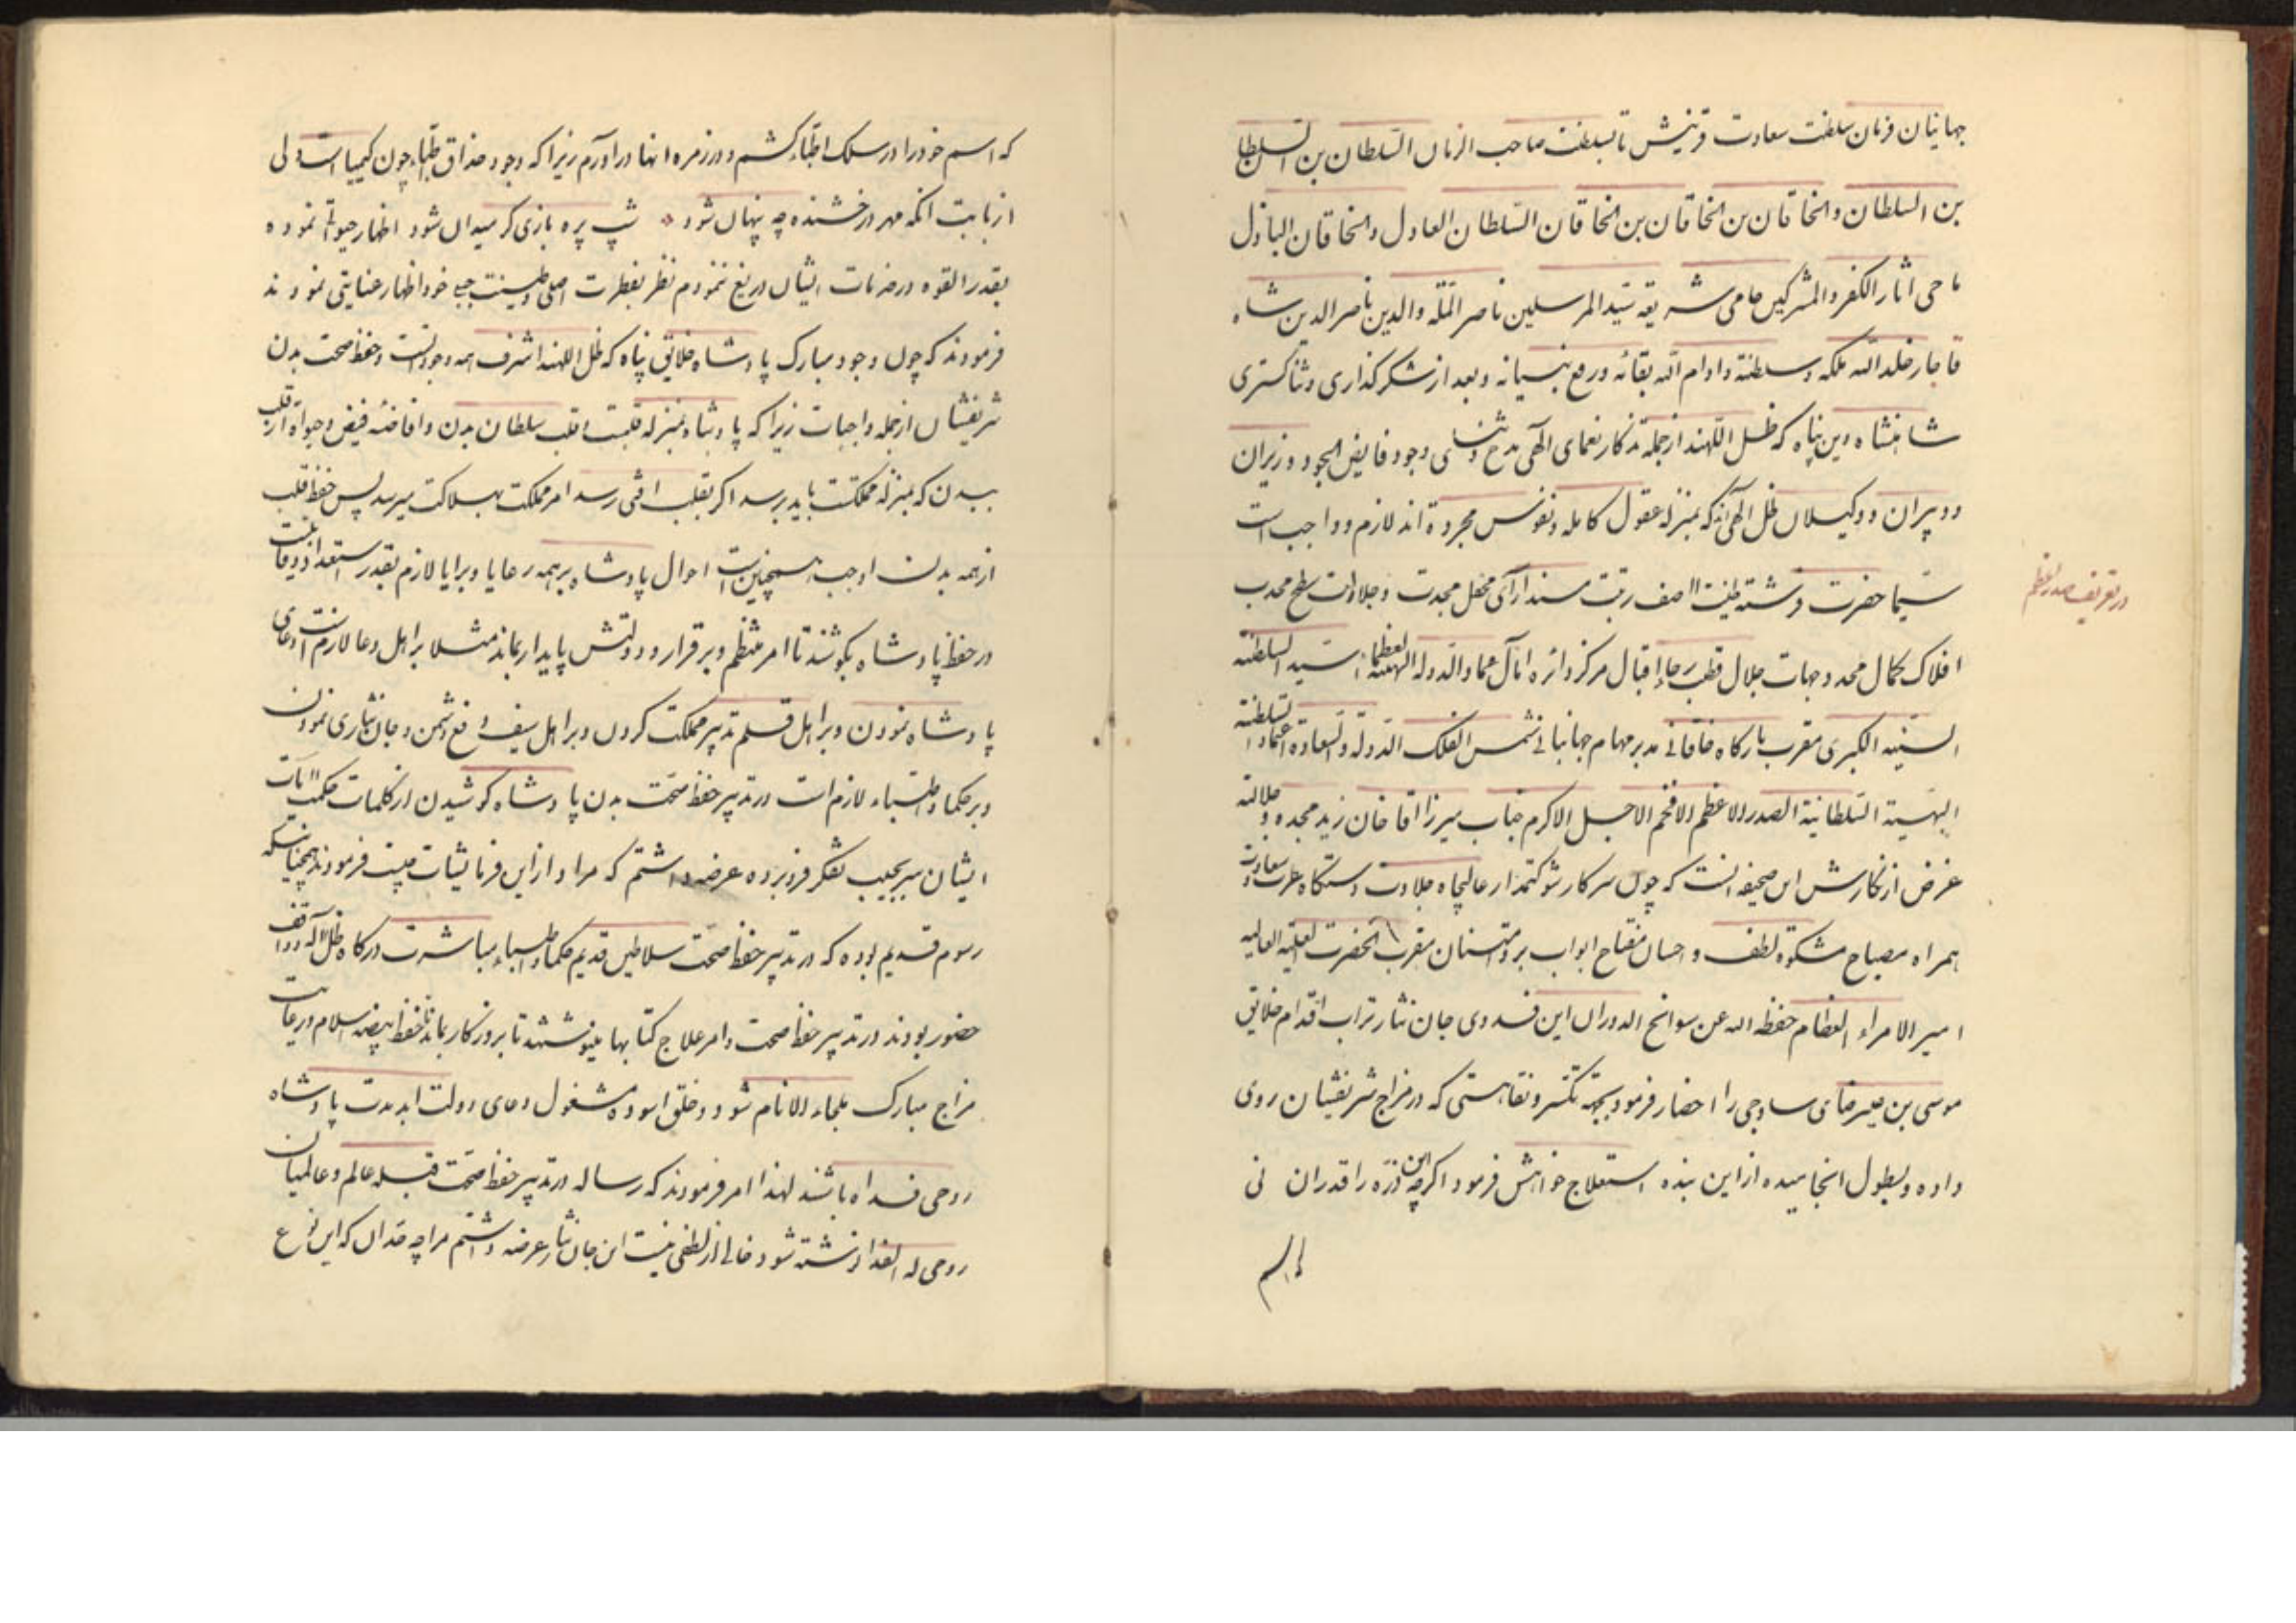 جهانیان فرمان سلطنت سعادت قرینش تا بسلطنت صاحب الزمان السلطان بن السلطان
بن السلطان والخاقان بن الخاقان بن الخاقان السلطان العادل والخاقان الباذل
ماحی اثار الکفر والمشرکین حامی شریعه سید المرسلین ناصر المله والدین ناصر الدین شاه
قاجار خلد الله ملکه وسلطنته وادام الله بقائه ورفع بنیانه وبعد از شکر کذاری وثنا کستری
شاهنشاه دین پناه که ظل اللهند از جمله تذکار نعمای الهی مدح وثنای وجود فایض الجود وزیران
ودبیران ووکیلان ظل الهی که بمنزله عقول کامله ونفوس مجرده اند لازم وواجب است
در تعریف صدر اعظم
سیما حضرت فرشته طینت اصف رتبت مسند ارای محفل مجدت وجلادت سطح محدب
افلاک کمال محدد جهات جلال قطب رحاء اقبال مرکز دائره امال عماد الدوله البهیه العظماء سید السلطنه
السنیه الکبری مقرب بارکاه خاقانی مدبر مهام جهانبانی شمس الفلک الدولة والسعاده اعتماد السلطنة
البهیة السلطانیة الصدر الاعظم الافخم الاجل الاکرم جناب میرزا اقا خان زید مجده وجلالته
غرض از نکارش این صحیفه انست که چون سرکار شوکتمدار عالیجاه جلادت دستکاه عزت سعادت
همراه مصباح مشکوة لطف واحسان مفتاح ابواب بر وامتنان مقرب الحضرت العلیة العالیه
امیر الامراء العظام حفظه الله عن سوانح الدوران این فدوی جان نثار تراب اقدام خلایق
موسی بن علیرضای ساوجی را احضار فرمود بجهة تکسر ونقاهتی که در مزاج شریفشان روی
داده وبطول انجامیده از این بنده استعلاج خواهش فرمود اکرچه این ذره را قدر ان نی
که اسم خود را در سلک اطباء کشم ودر زمره انها در اورم زیرا که وجود حذاق اطباء چون کیمیاست ولی
از بابت انکه مهر درخشنده چه پنهان شود شب پره بازی کر میدان شود اظهار حیوة نموده
بقدر القوه در خدمات ایشان دریغ ننمودم نظر بفطرت اصلی وطینت جبلی خود اظهار عنایتی نمودند
فرمودند که چون وجود مبارک پادشاه خلایق پناه که ظل اللهند اشرف همه وجودات است وحفظ صحت بدن
شریفشان از جمله واجبات زیرا که پادشاه بمنزله قلبست وقلب سلطان بدن وافاضه فیض وحیواة از قلب
ببدن که بمنزله مملکتست باید برسد اکر بقلب افتی رسد امر مملکت بهلاکت میرسد پس حفظ قلب
از همه بدن اوجب همچنین است احوال پادشاه بر همه رعایا وبرایا لازم بقدر استعداد وقابلیت
در حفظ پادشاه بکوشند تا امر منتظم وبرقرار ودولتش پایدار بماند مثلا بر اهل دعا لازم است دعای
پادشاه نمودن وبر اهل قلم تدبیر مملکت کردن وبر اهل سیف دفع دشمن وجان نثاری نمودن
وبر حکماء واطباء لازم است در تدبیر حفظ صحت بدن پادشاه کوشیدن از کلمات حکمت ایات
ایشان سر بجیب تفکر فرو برده عرضه داشتم که مراد از این فرمایشات چیست فرمودند همچنانکه
رسوم قدیم بوده که در تدبیر حفظ صحت سلاطین قدیم حکماء واطباء مباشرت درکاه ظل اله وواقف
حضور بودند در تدبیر حفظ صحت وامر علاج کتابها مینوشتند تا بروزکار بماند تا حفظ بیضه اسلام ورعایت
مزاج مبارک ملجاء الانام شود وخلق اسوده مشغول دعای دولت ابد مدت پادشاه
روحی فداه باشند لهذا امر فرمودند که رساله در تدبیر حفظ صحت قبله عالم وعالمیان
روحی له الفدا نوشته شود خالی از لطفی نیست این جان نثار عرضه داشتم مرا چه حد ان که این نوع